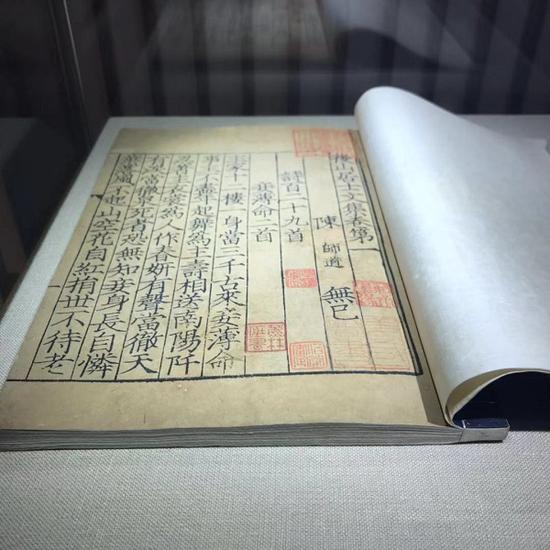 後山居士文集卷第一
陳師道 無己
詩百二十九首
妾薄命二首
主家十二樓一身當三千古來妾薄命
事主不盡年起舞爲主壽相送南陽阡
忍著主衣裳爲人作春妍有聲當徹天
有淚當徹泉死者恐無知妾身長自憐
葉落風不起山空花自紅捐世不待老